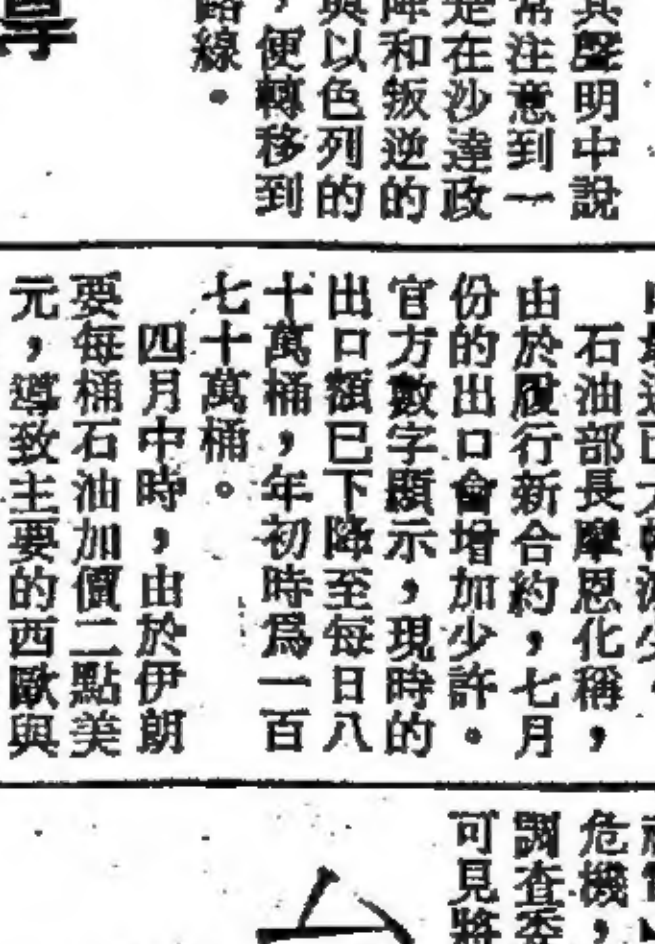 其聲明中說
常注意到一
是在沙達政
陣和叛逆的
與以色列的
，便轉移到
路線。
石油部長摩恩化稱，
由於履行新合約，七月
份的出口會增加少許。
官方數字顯示，現時的
出口額已下降至每日八
十萬桶，年初時爲一百
七十萬桶。
四月中時，由於伊朗
要每桶石油加價二點美
元，導致主要的西歐與
危機，
調查委
可見將